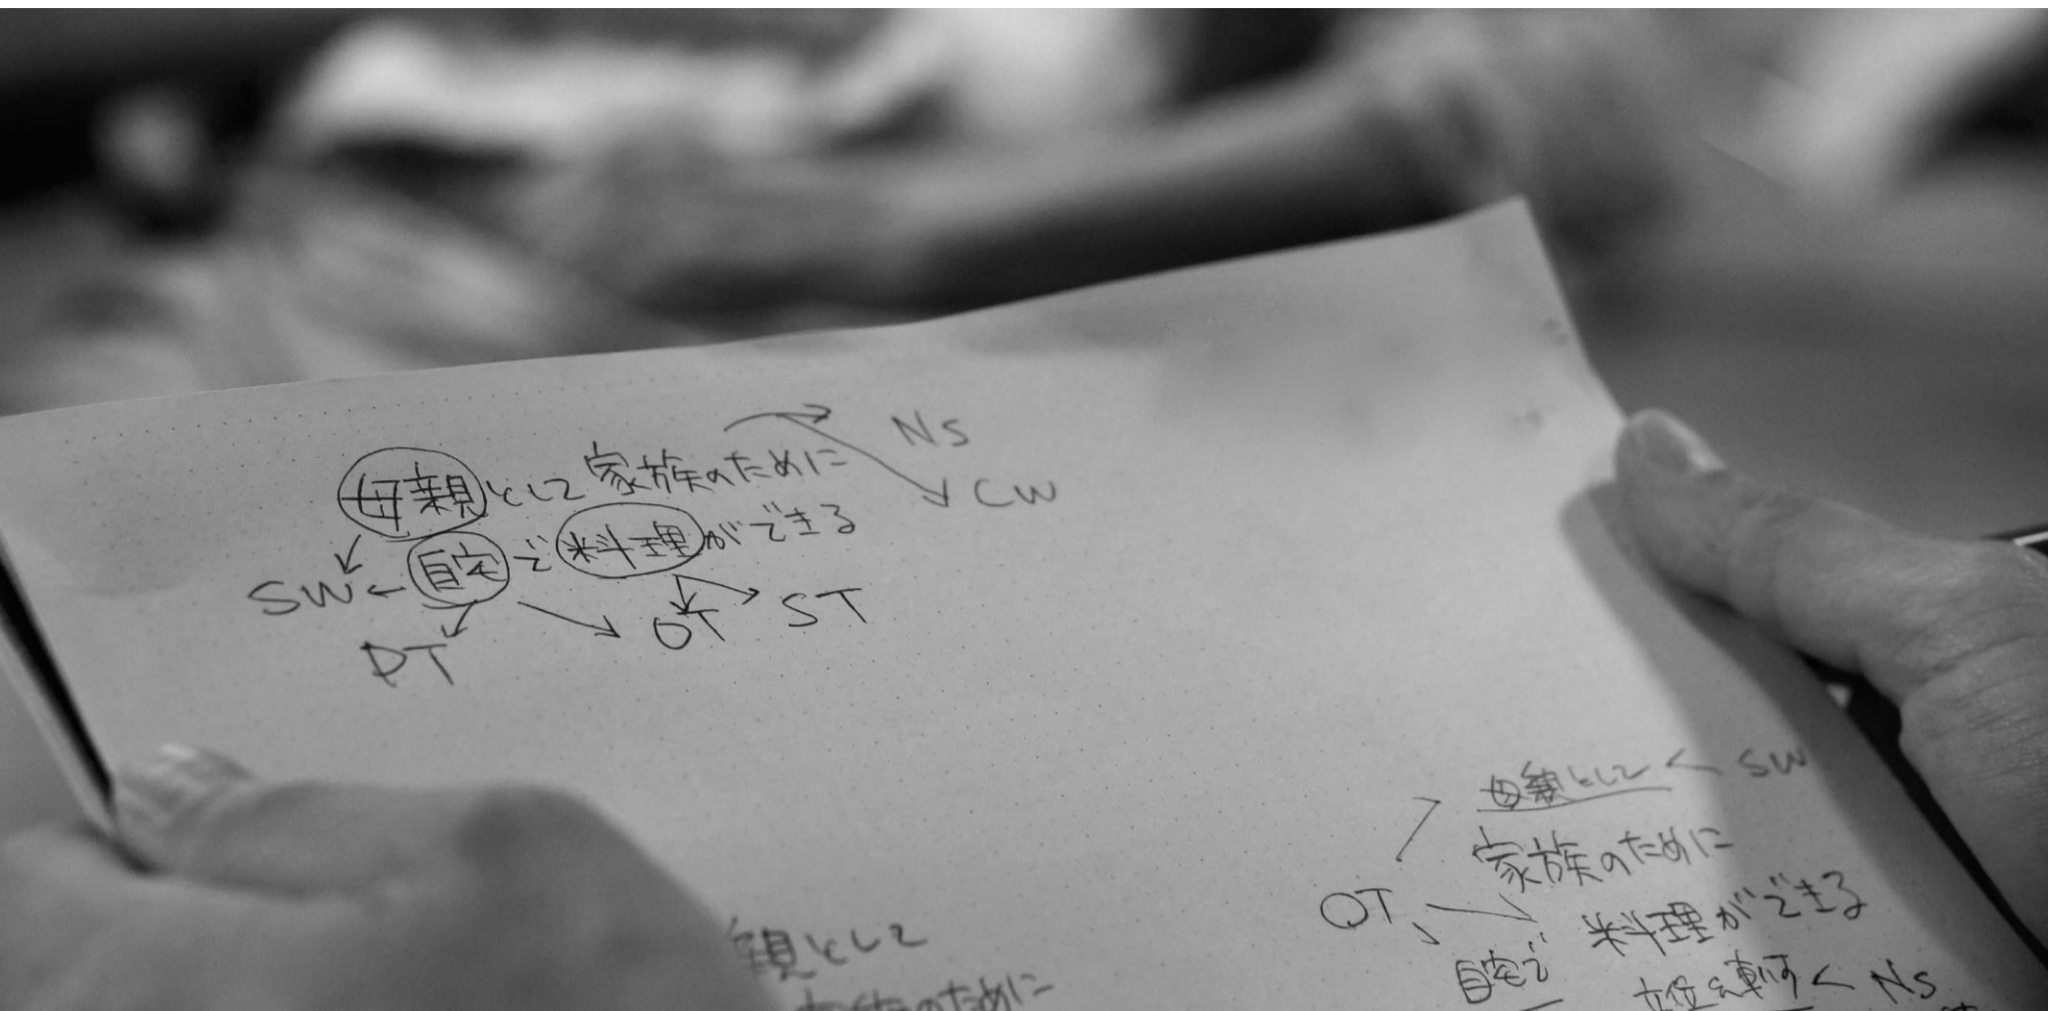 母親として家族のために Ns
CW
自宅で料理ができる
SW
PT OT ST
母親として SW
家族のために
OT
料理ができる
自宅で
Ns
親として
のために